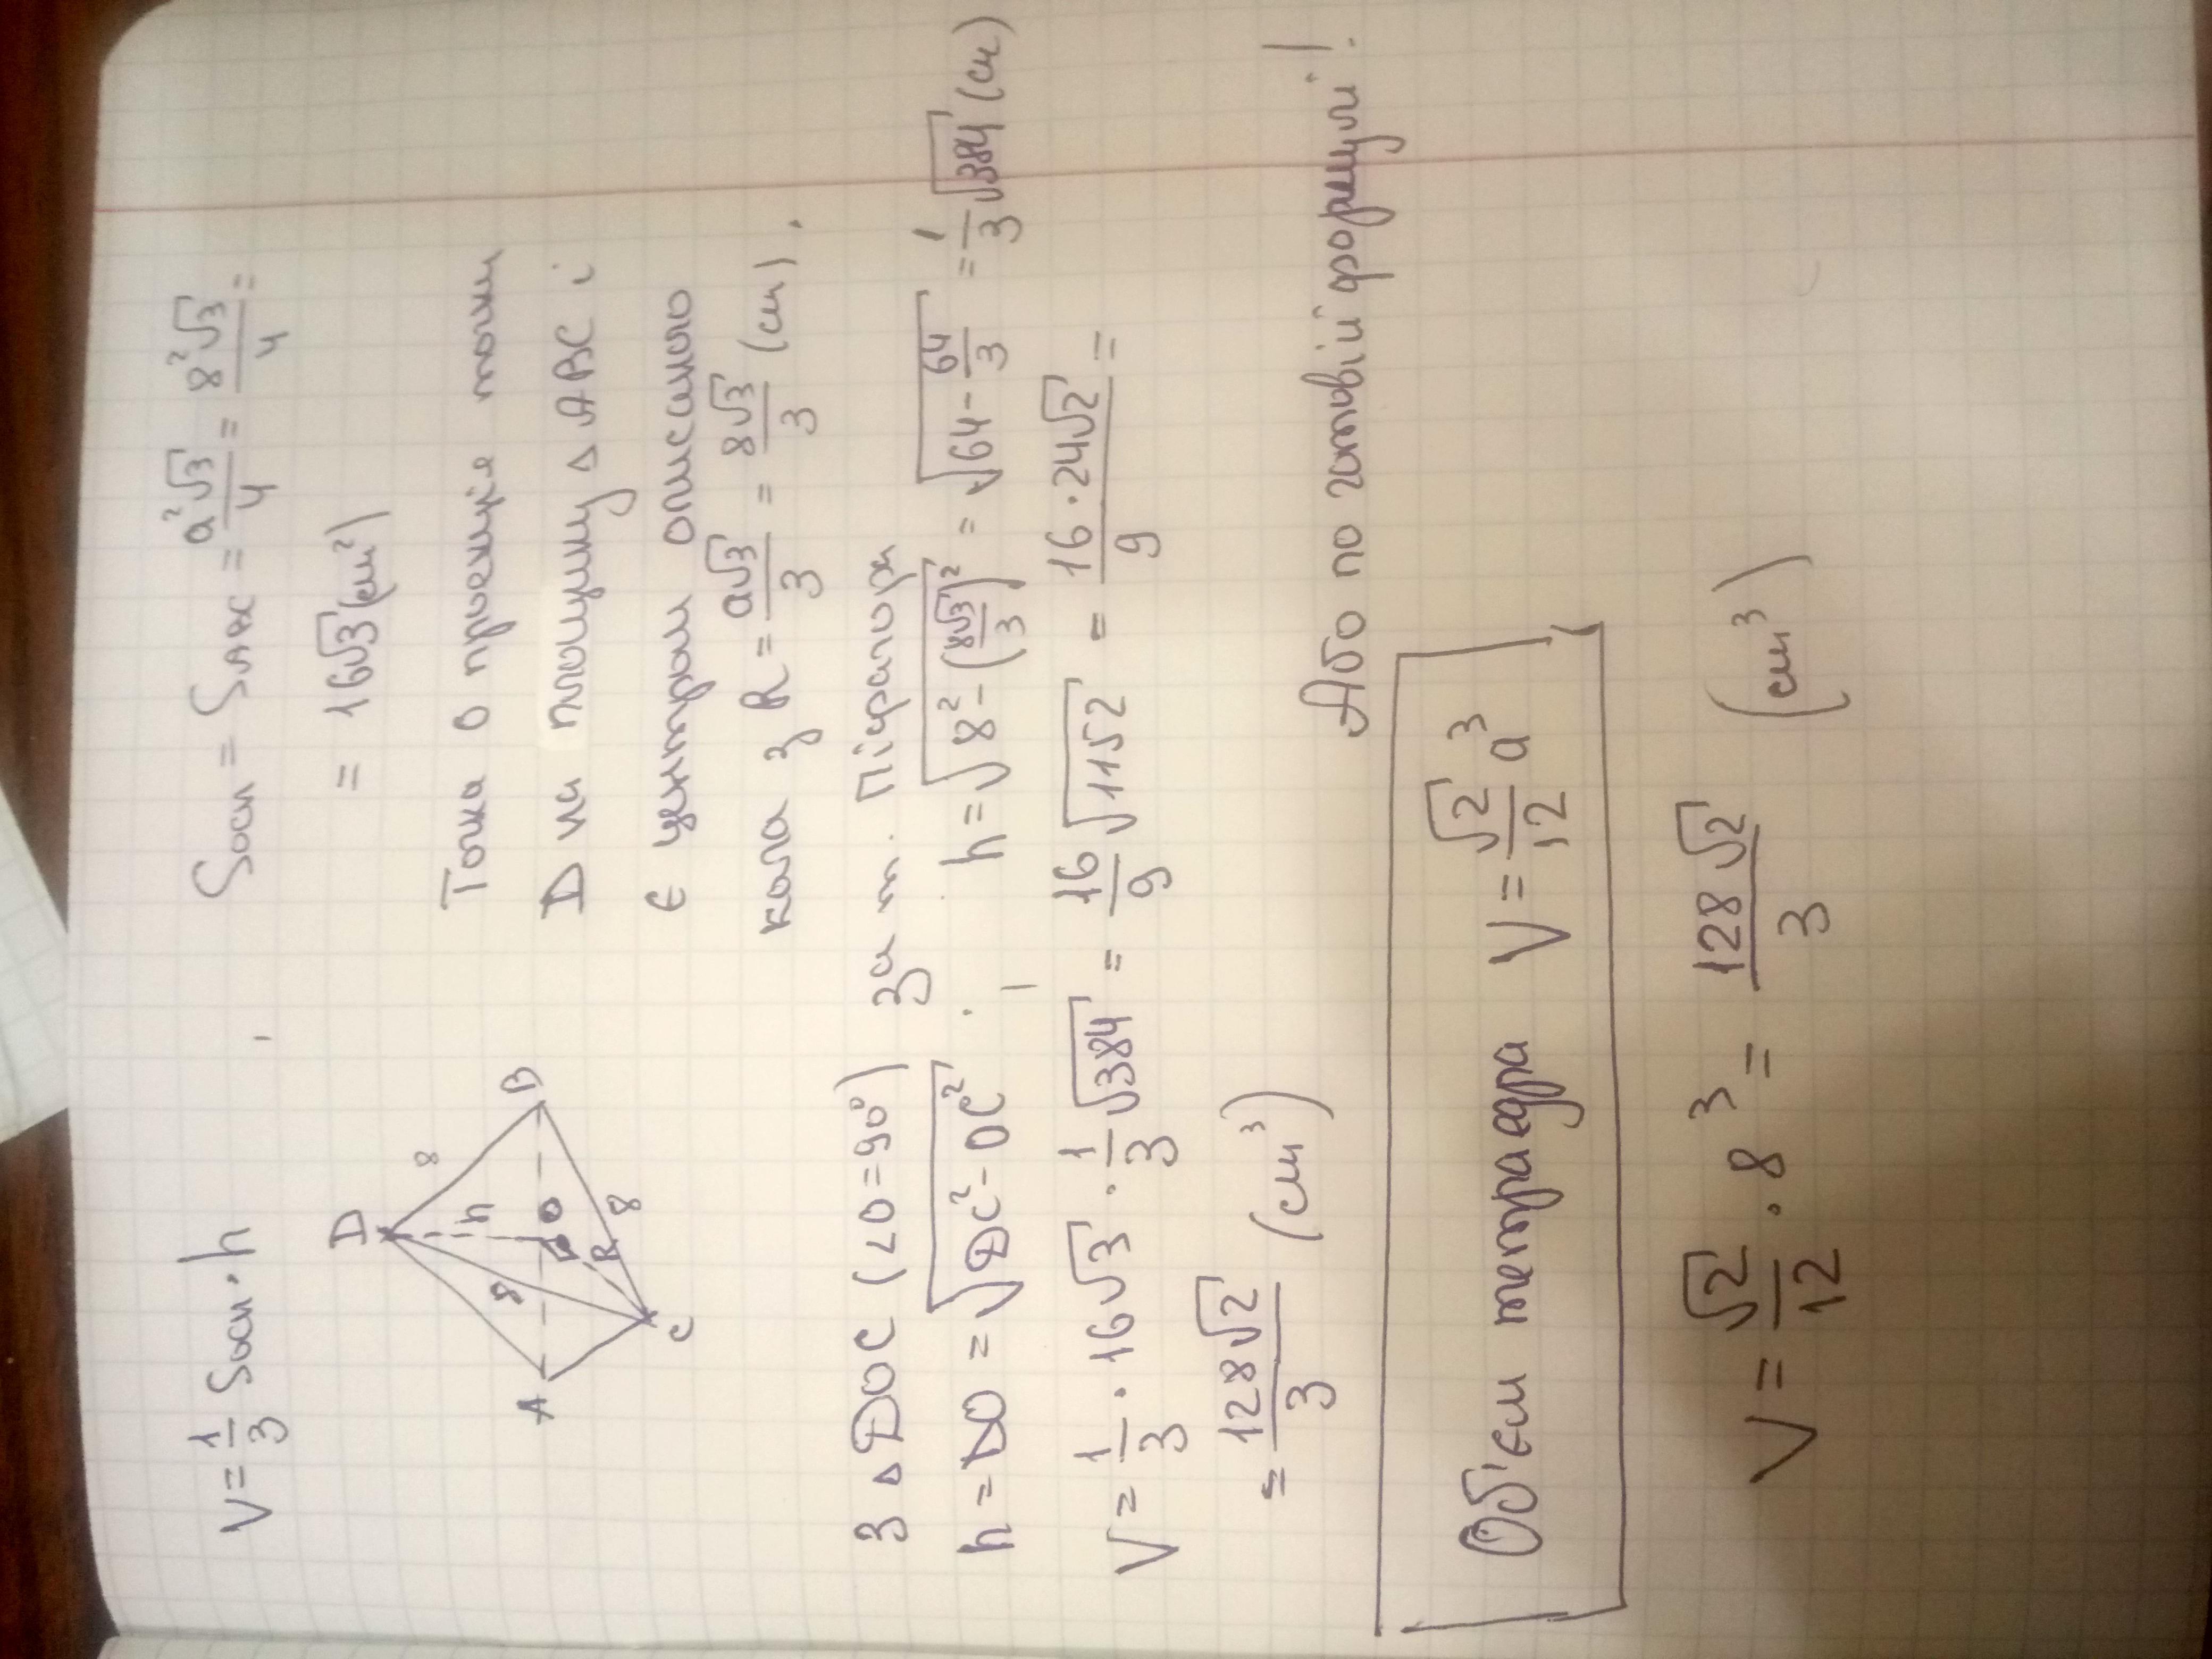 V = 1/3 Sосн · h
Sосн = S ABC = a²√3/4 = 8²√3/4 =
= 16√3 (см²)
D
8
h
8
A
O
B
R
8
C
Точка O проекція точки
D на площину △ABC і
є центром описаного
кола з R = a√3/3 = 8√3/3 (см).
З △DOC (∠O = 90°) за т. Піфагора
h = DO = √(DC² - OC²)
h = √(8² - (8√3/3)²) = √(64 - 64/3) = 1/3 √384 (см)
V = 1/3 · 16√3 · 1/3 √384 = 16/9 √1152 = 16 · 24√2/9 =
= 128√2/3 (см³)
Або по готовій формулі!
Об'єм тетраедра V = √2/12 a³
V = √2/12 · 8³ = 128√2/3 (см³)